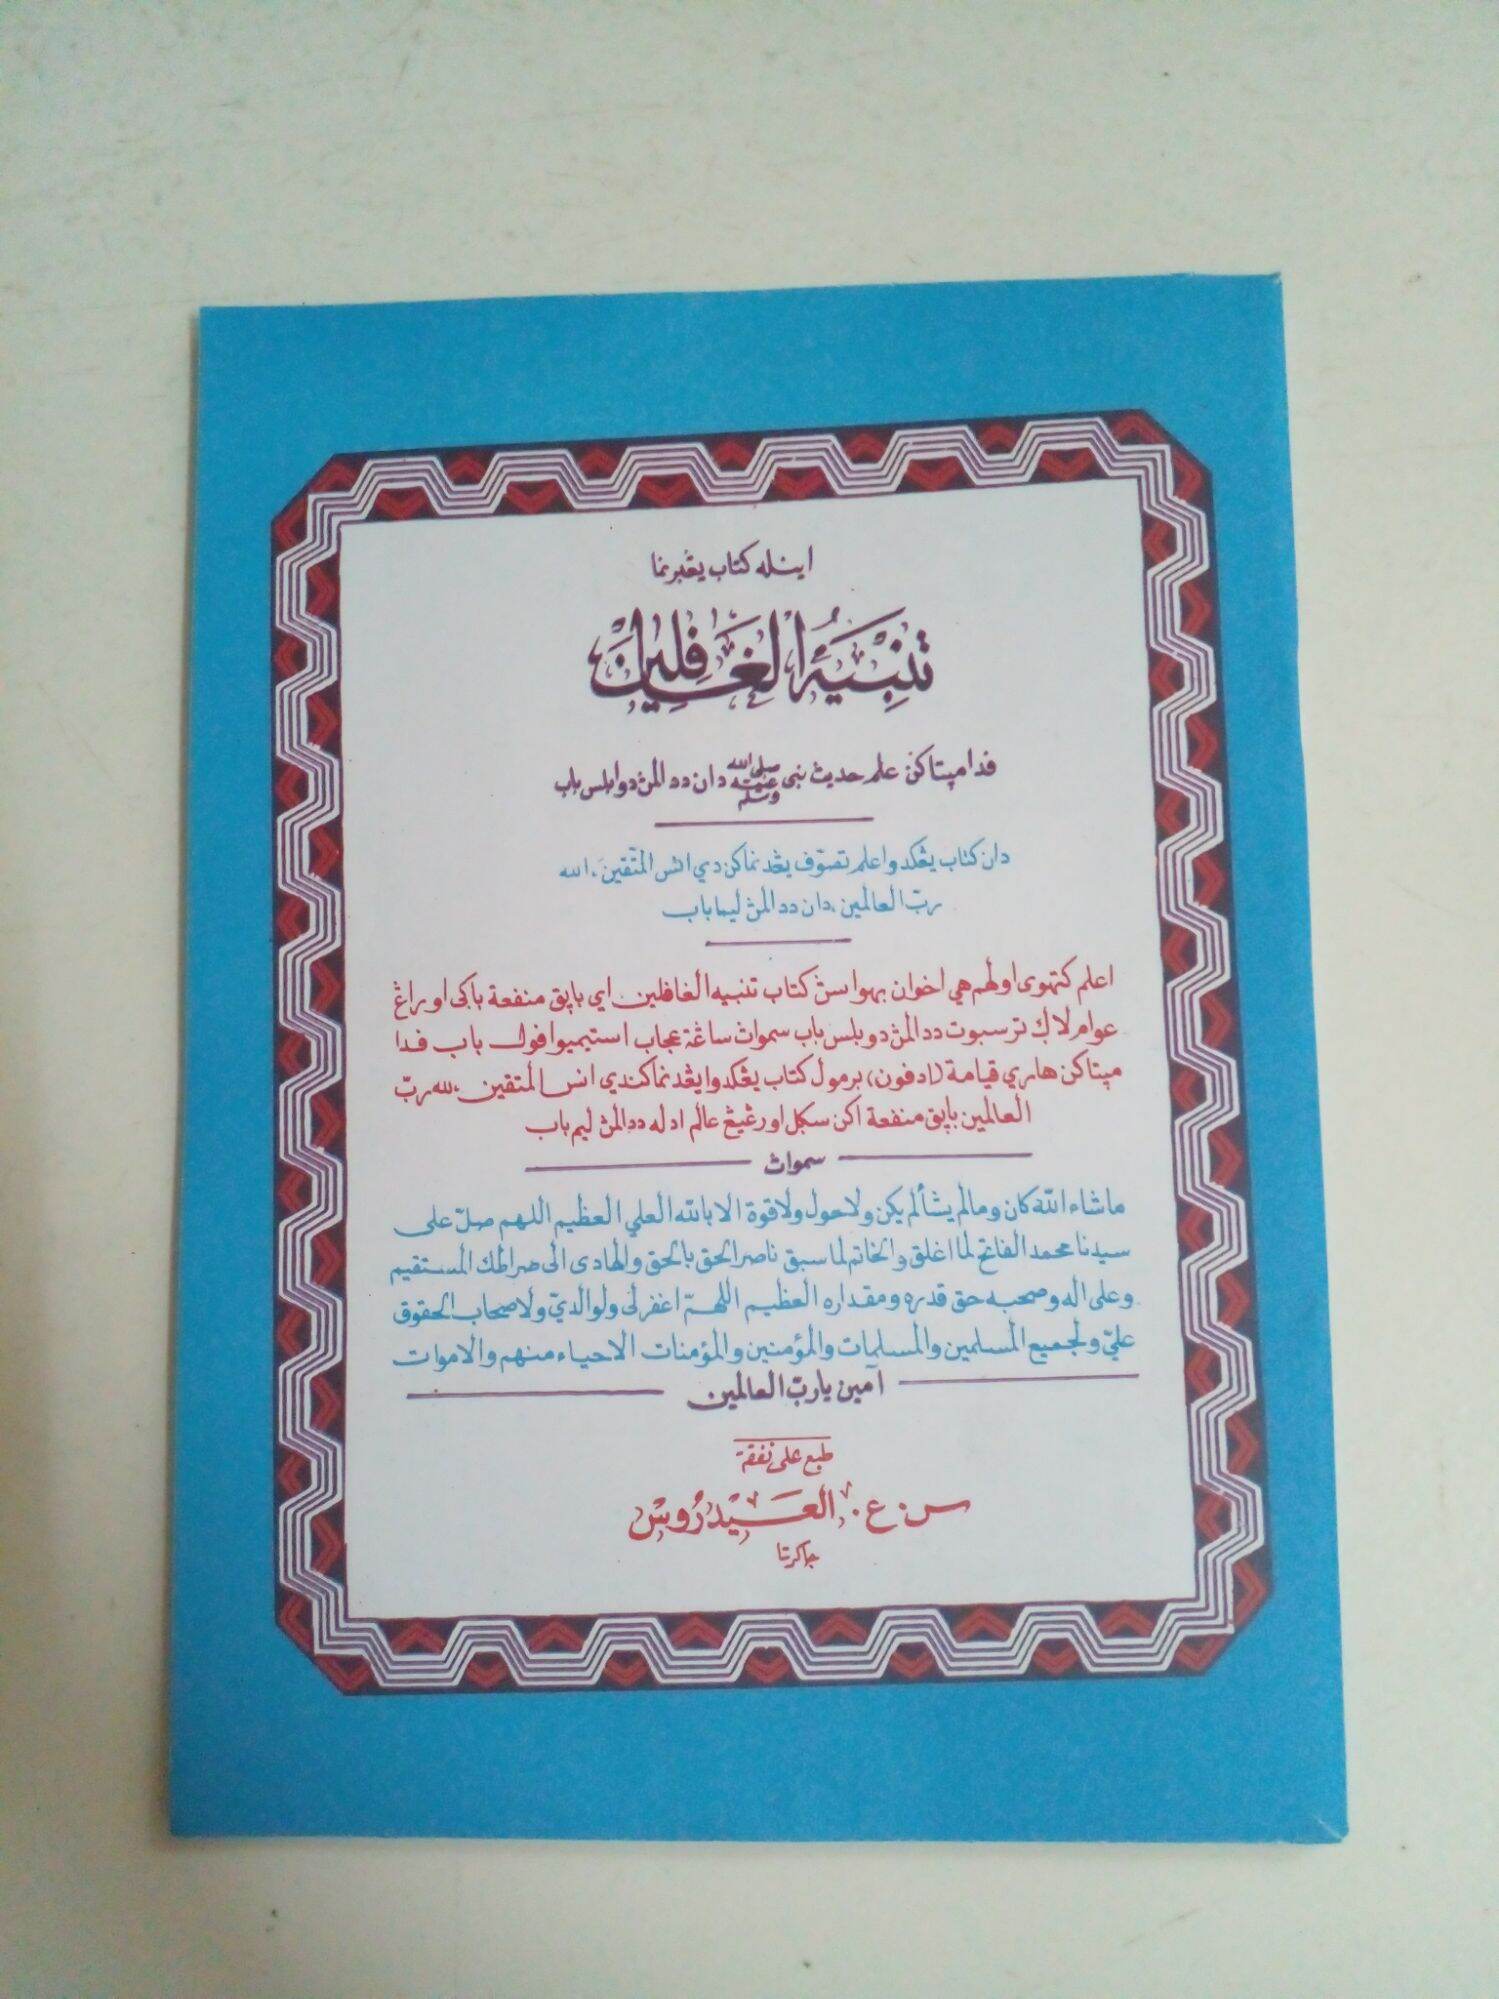 اينله كتاب يڠبرنما
تَنْبِيهُ الْغَافِلِينَ
ڤدا مپتاكن علم حديث نبى صلى الله عليه وسلم دان ددالمڽ دوابلس باب
دان كتاب يڠكدوا علم تصوّف يڠد نماكن دي انس المتّقين، الله
ربّ العالمين، دان ددالمڽ ليما باب
اعلم كتهوى اولهم هي اخوان بهواسڽ كتاب تنبيه الغافلين اي باپق منفعة باكى اورڠ
عوام لاكي ترسبوت ددالمڽ دوبلس باب سمواڽ ساڠة عجاب استيميوا ڤول باب ڤدا
مپتاكن هاري قيامة (ادڤون) برمول كتاب يڠكدوا يڠد نماكندي انس المتقين، لله ربّ
العالمين باپق منفعة اكن سكل اورڠيڠ عالم ادله ددالمڽ ليم باب
سمواڽ
ماشاء الله كان ومالم يشألم يكن ولاحول ولاقوة الا بالله العلي العظيم اللهم صلّ على
سيدنا محمد الفاتح لما اغلق والخاتم لما سبق ناصر الحق بالحق والهادى الى صراطك المستقيم
وعلى اله وصحبه حق قدره ومقداره العظيم اللهمّ اغفرلى ولوالديّ ولاصحاب الحقوق
عليّ ولجميع المسلمين والمسلمات والمؤمنين والمؤمنات الاحياء منهم والاموات
آمين يارب العالمين
طبع على نفقة
س. ع. العَيْدَرُوسْ
جاكرتا